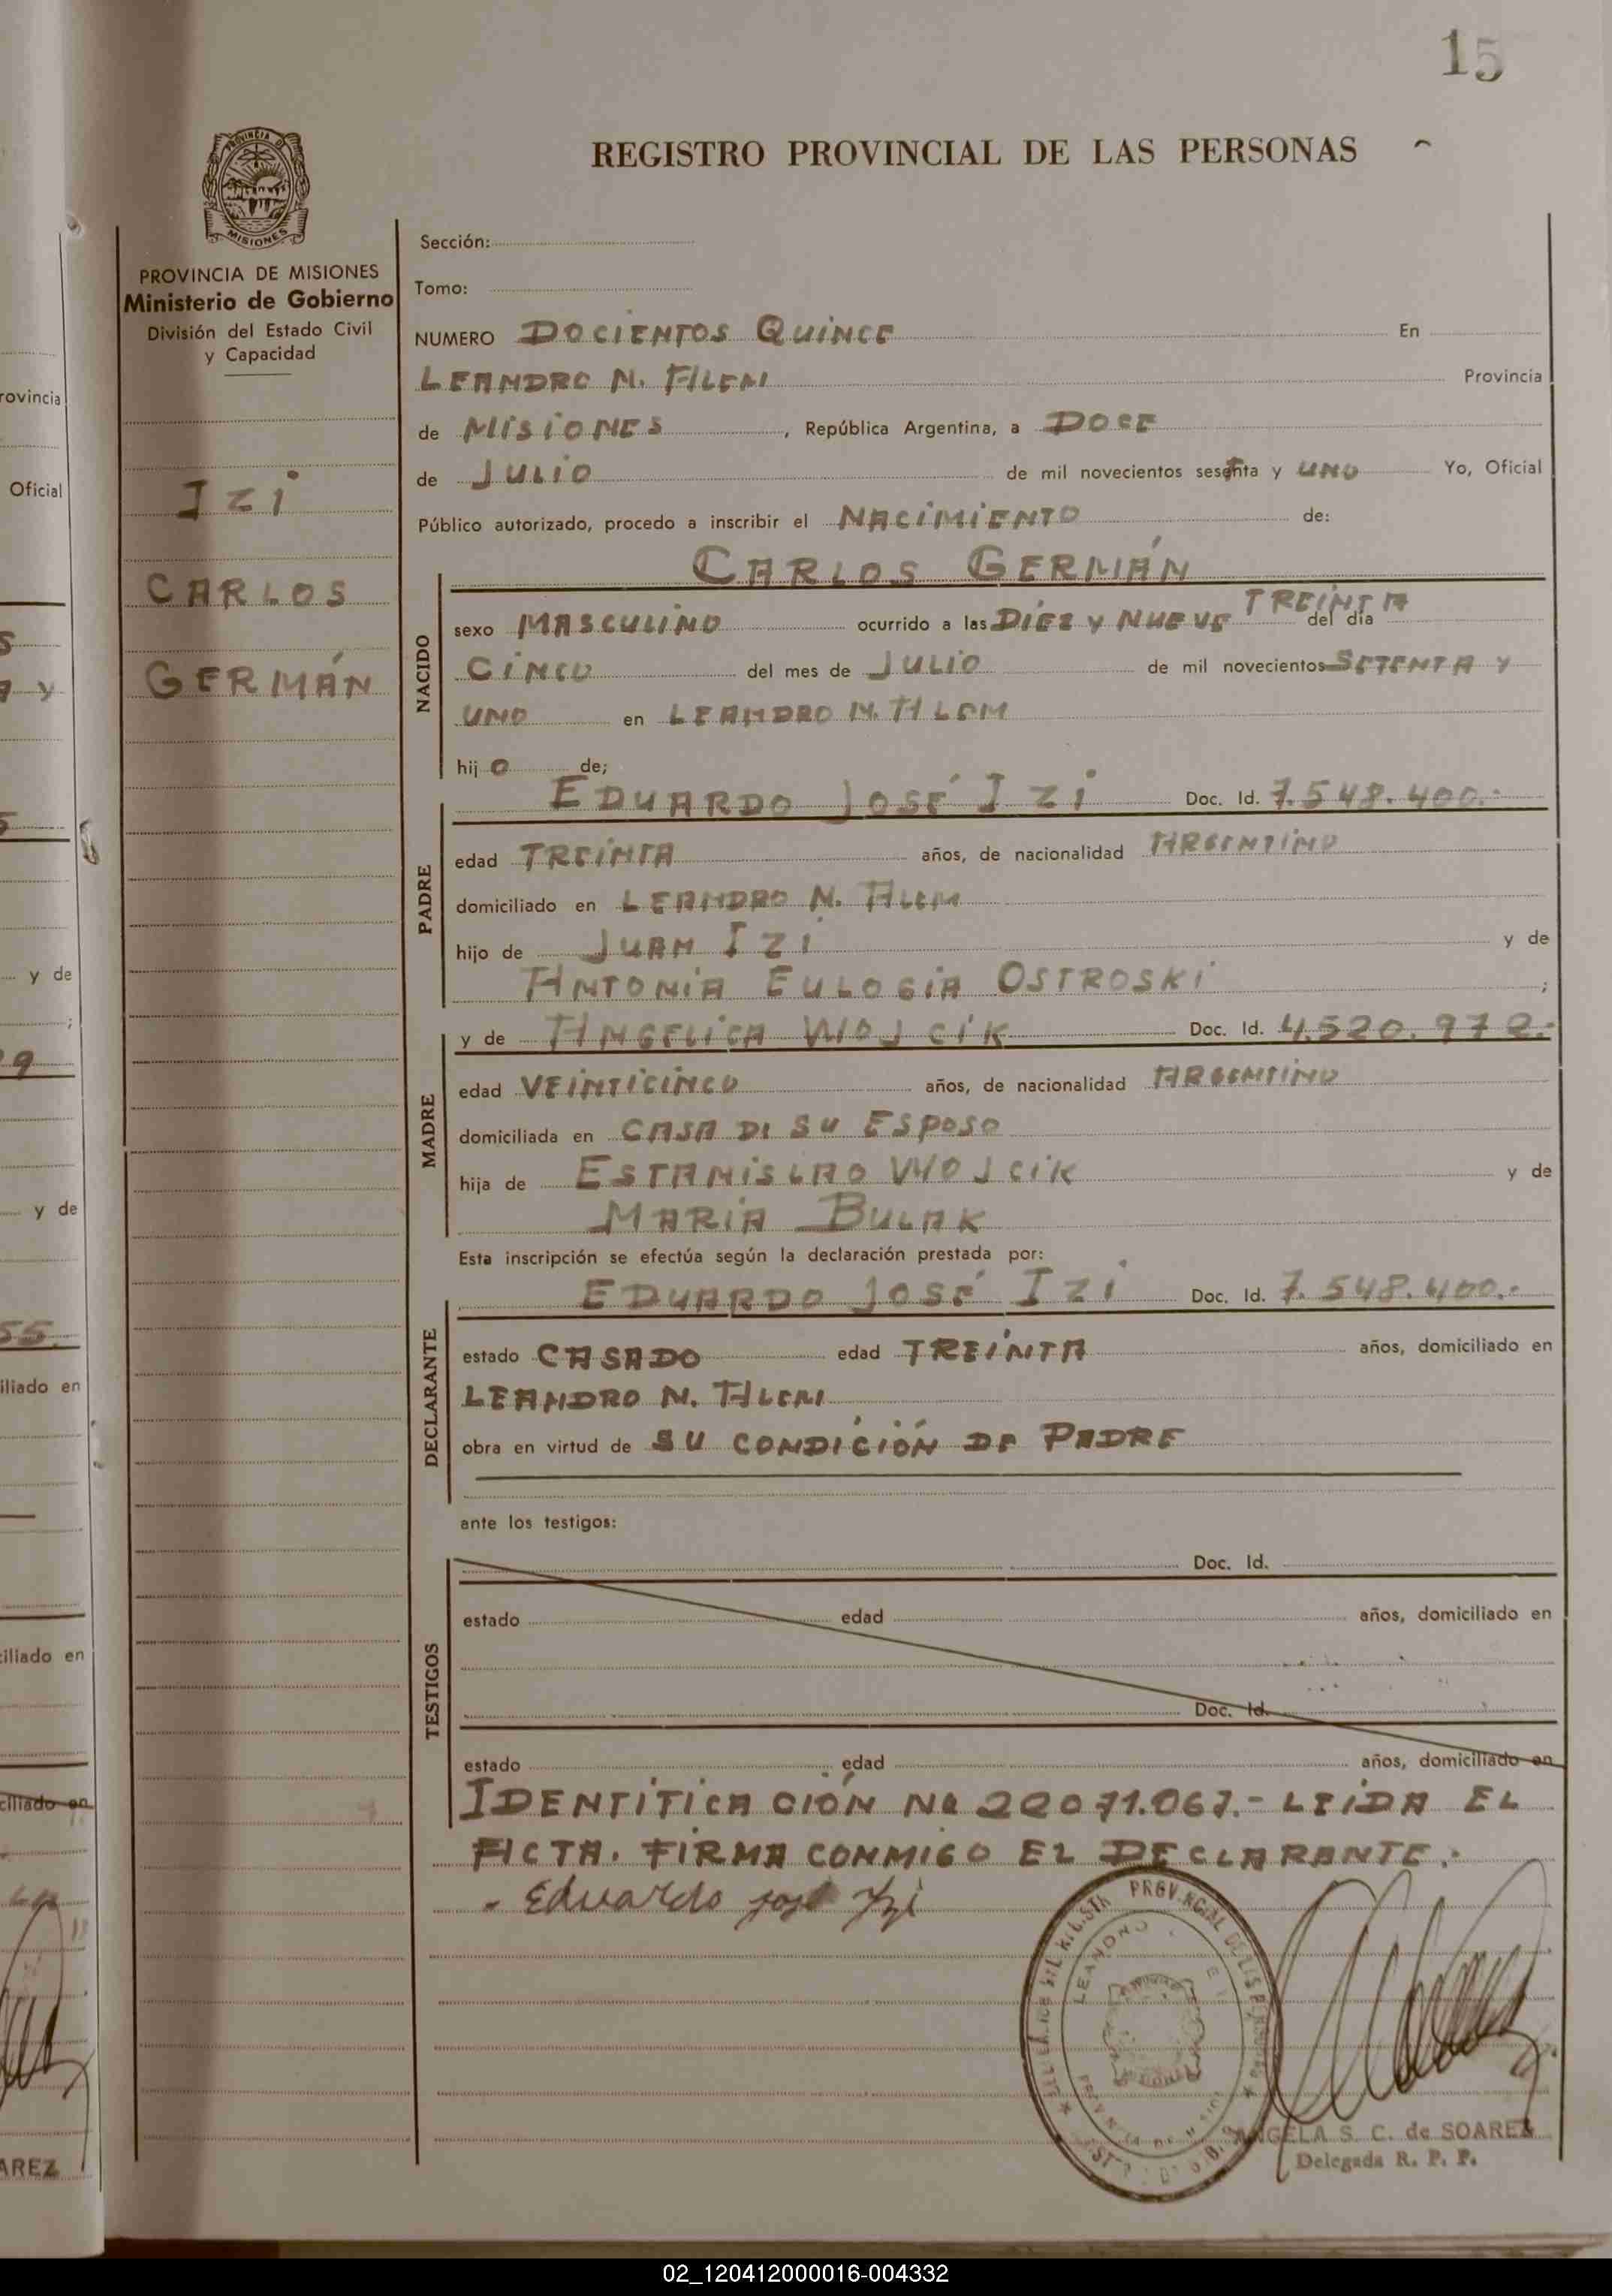 15
REGISTRO PROVINCIAL DE LAS PERSONAS
PROVINCIA DE
MISIONES
PROVINCIA DE MISIONES
Ministerio de Gobierno
División del Estado Civil
y Capacidad
IZi
CARLOS
GERMÁN
Sección:
Tomo:
NUMERO DOCIENTOS QUINCE En
LEANDRO N. ALEM Provincia
de MISIONES, República Argentina, a DOCE
de JULIO de mil novecientos sesenta y UNO Yo, Oficial
Público autorizado, procedo a inscribir el NACIMIENTO de:
CARLOS GERMÁN
NACIDO
sexo MASCULINO ocurrido a las DIEZ Y NUEVE TREINTA del día
CINCO del mes de JULIO de mil novecientos SETENTA Y
UNO en LEANDRO N. ALEM
hijo de;
EDUARDO JOSÉ IZi Doc. Id. 7.548.400.-
PADRE
edad TREINTA años, de nacionalidad ARGENTINO
domiciliado en LEANDRO N. ALEM
hijo de JUAN IZi y de
ANTONIA EULOGIA OSTROSKI ;
y de ANGELICA WOJCIK Doc. Id. 4.520.972.-
MADRE
edad VEINTICINCO años, de nacionalidad ARGENTINO
domiciliada en CASA DI SU ESPOSO
hija de ESTANISLAO WOJCIK y de
MARIA BULAK
Esta inscripción se efectúa según la declaración prestada por:
EDUARDO JOSÉ IZi Doc. Id. 7.548.400.-
DECLARANTE
estado CASADO edad TREINTA años, domiciliado en
LEANDRO N. ALEM
obra en virtud de SU CONDICIÓN DE PADRE
ante los testigos:
Doc. Id.
TESTIGOS
estado edad años, domiciliado en
Doc. Id.
estado edad años, domiciliado en
IDENTIFICACIÓN No 22071.067.- LEIDA EL
ACTA. FIRMA CONMIGO EL DECLARANTE.-
Eduardo José Izi
LEANDRO
ANGELA S. C. de SOAREZ
Delegada R. P. P.
rovincia
Oficial
y de
;
9
y de
55
iliado en
ciliado en
ciliado en
AREZ
02_120412000016-004332